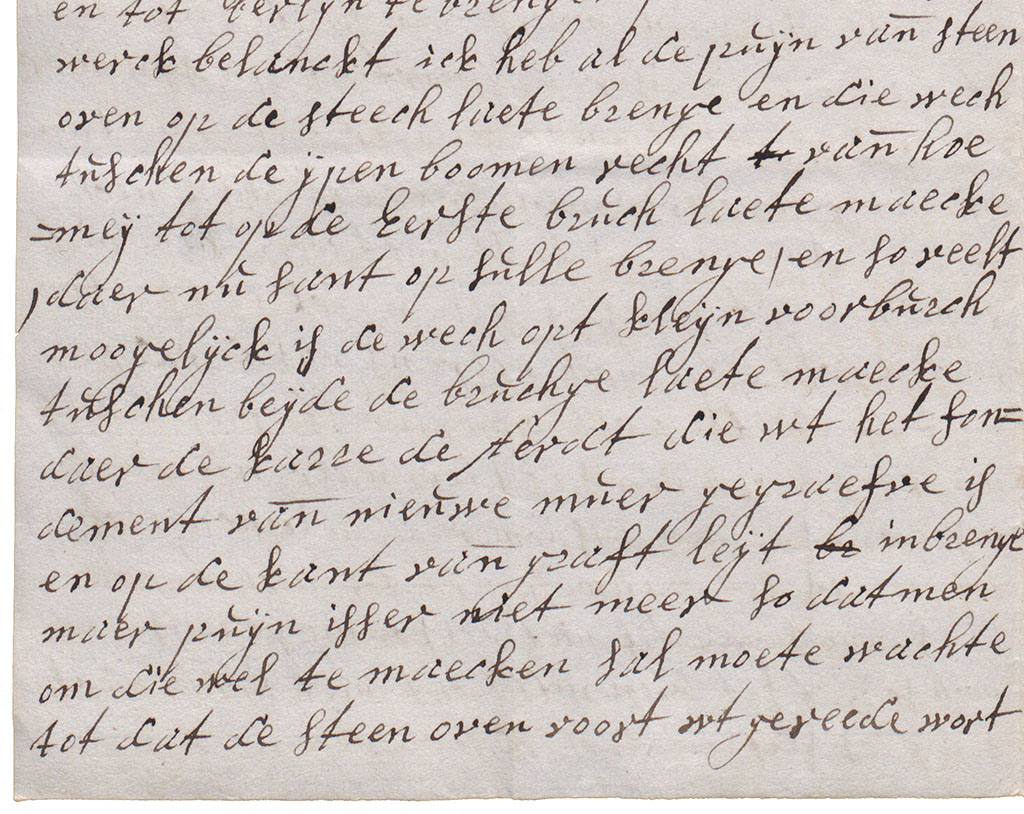 en tot Berlyn te brenge
werck belanckt ick heb al de puÿn vañ steen
oven op de steech laete brenge en die wech
tuschen de ÿpen boomen recht vañ hoe
=meÿ tot op de Eerste bruch laete maecke
daer nu sant op sulle brenge, en so veelt
moogelÿck is de wech opt kleÿn voorburch
tuschen beÿde de bruchge laete maecke
daer de karre de Aerdt die wt het fon=
dement vañ nieuwe muer gegraefve is
en op de kant vañ graft leÿt inbrenge
maer puÿn isser niet meer so datmen
om die wel te maecken sal moete wachte
tot dat de steen oven voort wt gereede wort